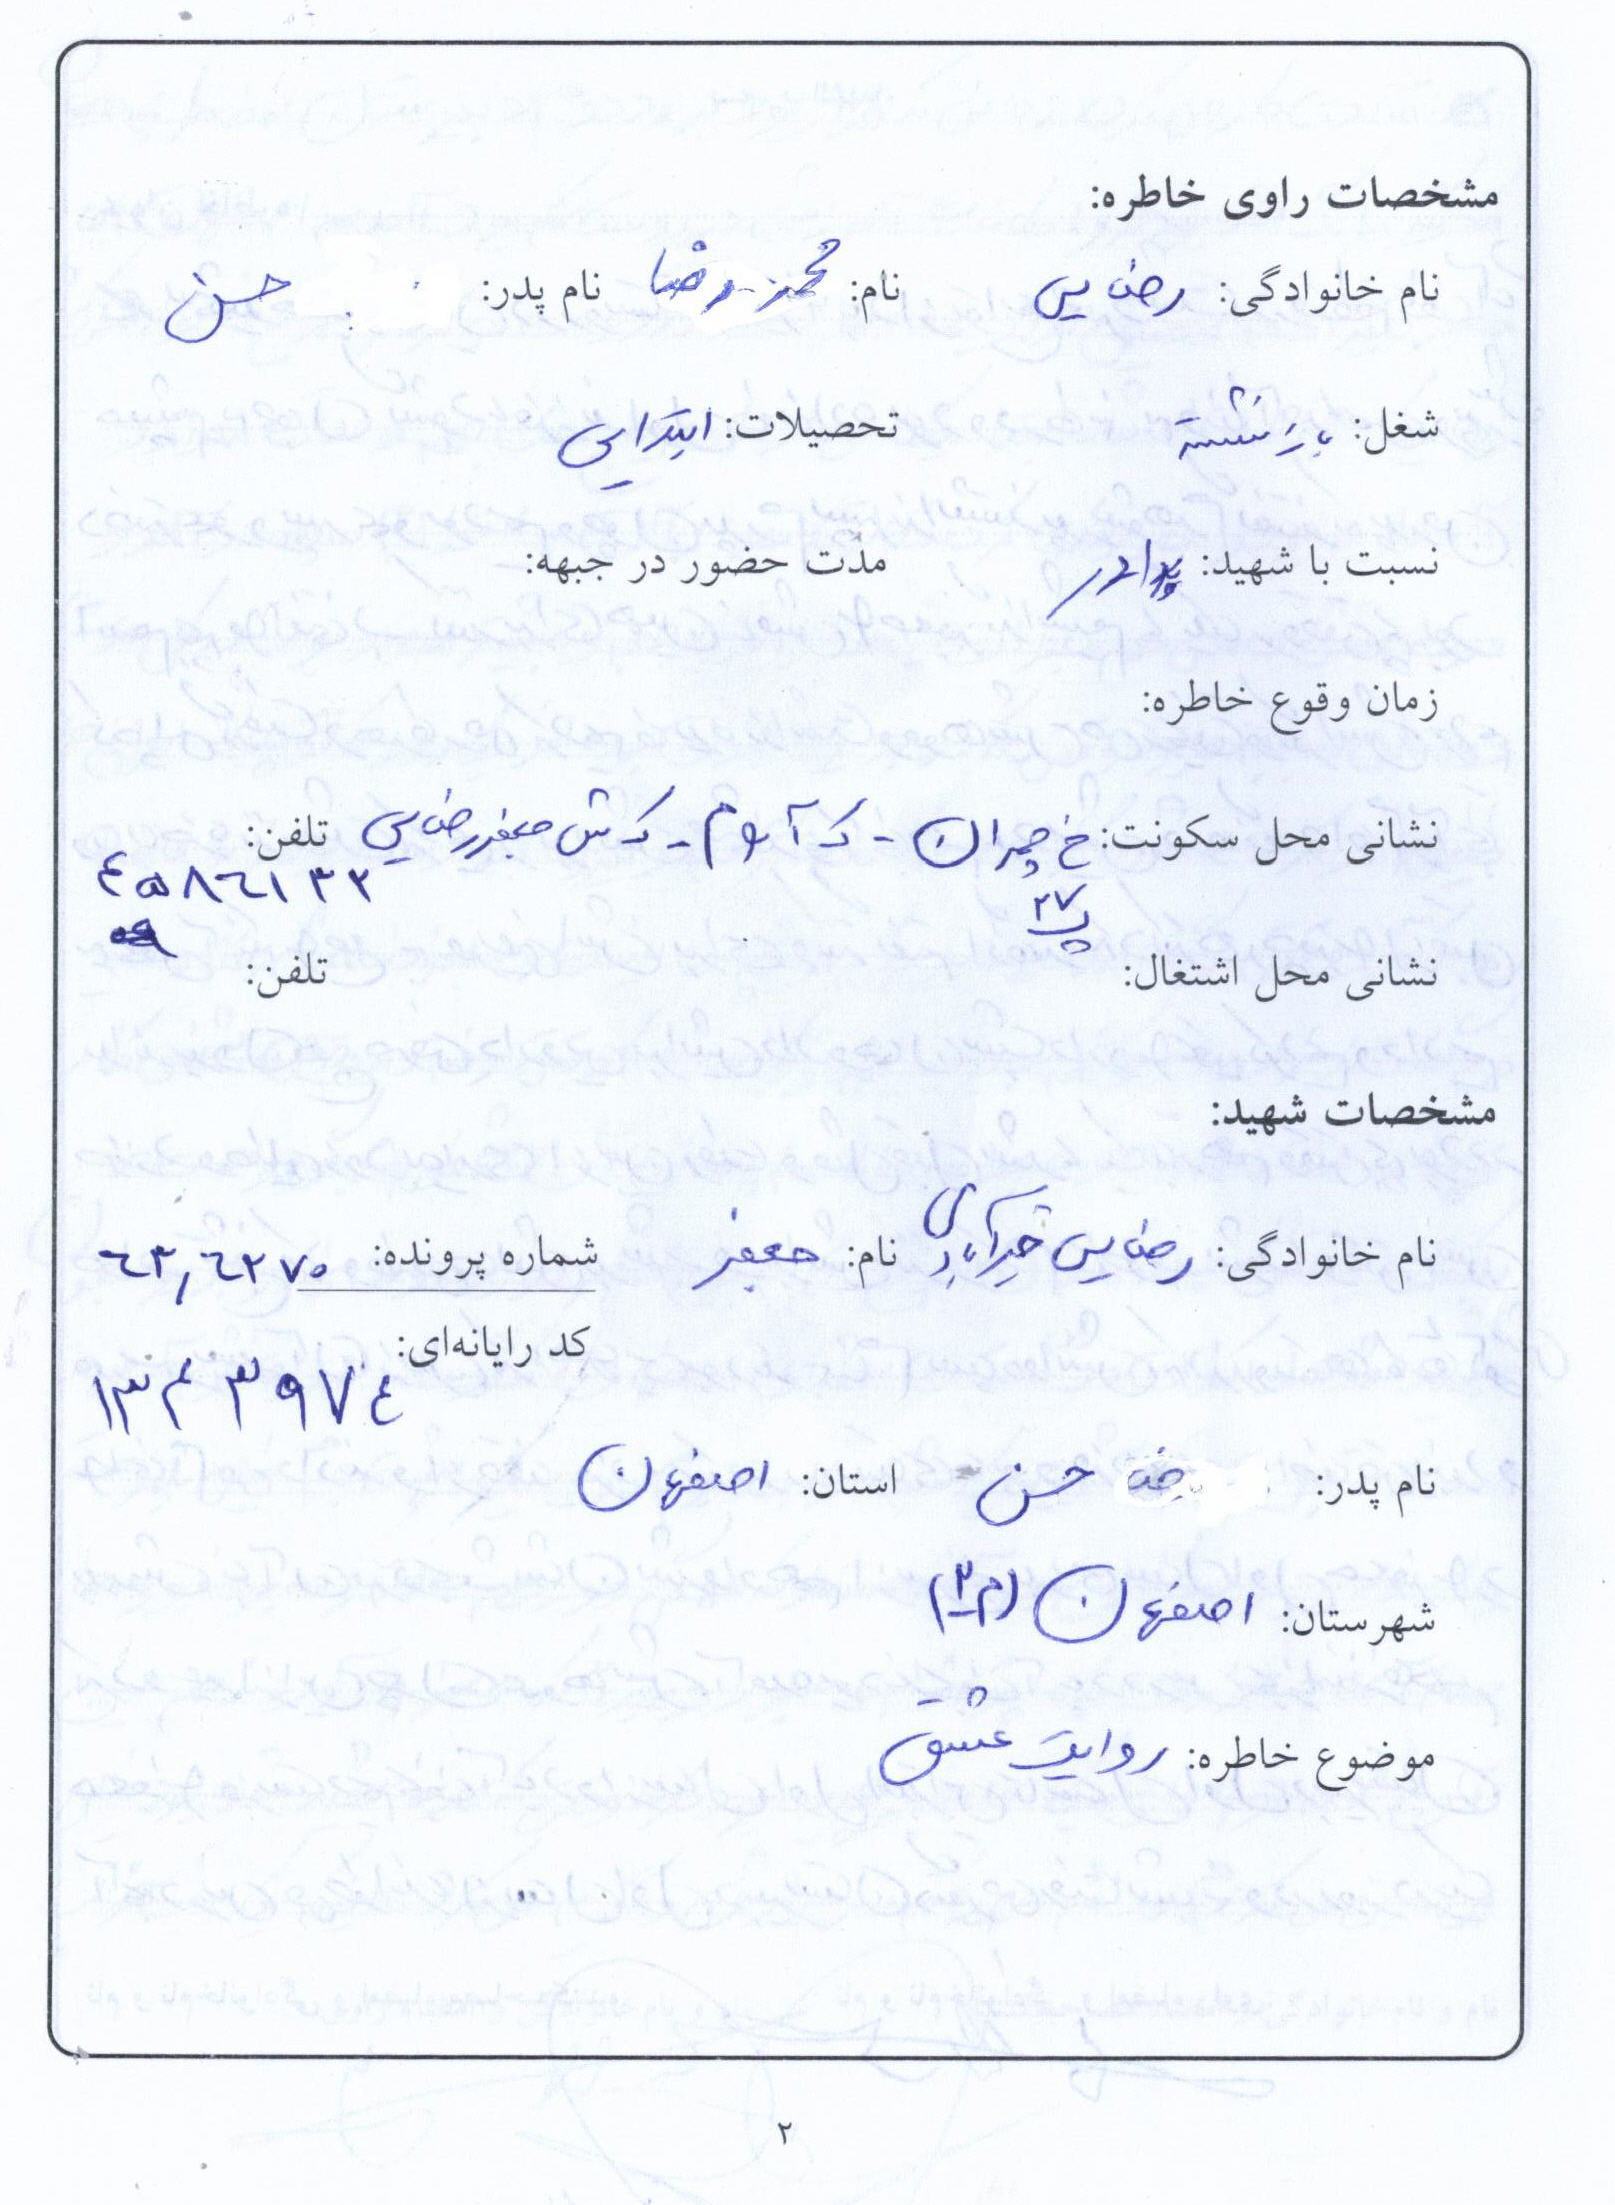 مشخصات راوی خاطره:
نام خانوادگی: رضایی نام: محمدرضا نام پدر: حسن
شغل: بازنشسته تحصیلات: ابتدایی
نسبت با شهید: برادر مدّت حضور در جبهه:
زمان وقوع خاطره:
نشانی محل سکونت: خ چمران - ک - ک ش جعفر رضایی تلفن:
پ ۲۷ ۴۵۸۶۱۳۲
نشانی محل اشتغال: تلفن:
مشخصات شهید:
نام خانوادگی: رضایی خیرآبادی نام: جعفر شماره پرونده: ۶۳٫۶۲۷۰
کد رایانه‌ای:
۱۳۴۳۹۷۴
نام پدر: حسن استان: اصفهان
شهرستان: اصفهان (م۳)
موضوع خاطره: روایت عشق
۲